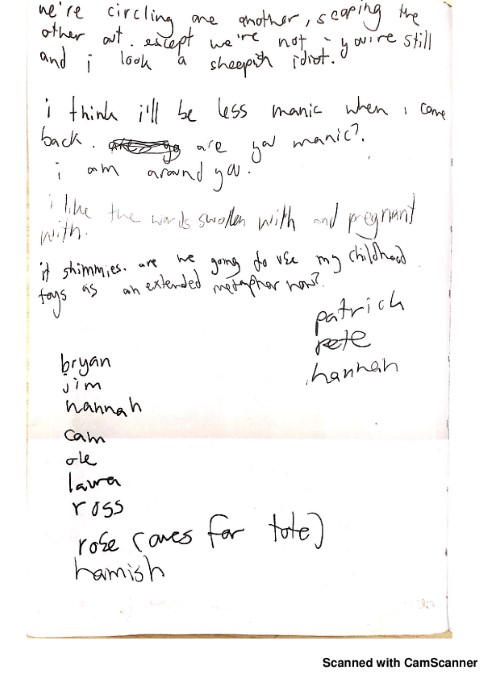 we're circling one another, scoping the
other out. except we're not - you're still
and i look a sheepish idiot.
i think i'll be less manic when i come
back. are you manic?
i am around you.
i like the words swollen with and pregnant
with.
it shimmies. are we going to use my childhood
toys as an extended metaphor now?
patrick
pete
hannah
bryan
jim
hannah
cam
ole
laura
ross
rose (owes for tote)
hamish
Scanned with CamScanner